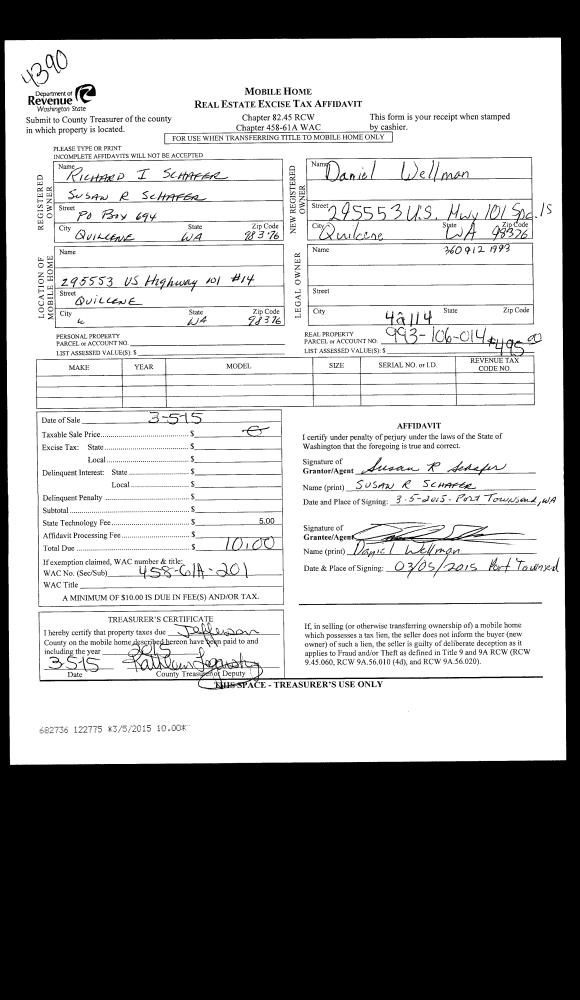 4390
Department of
Revenue
Washington State
Submit to County Treasurer of the county
in which property is located.
MOBILE HOME
REAL ESTATE EXCISE TAX AFFIDAVIT
Chapter 82.45 RCW
Chapter 458-61A WAC
This form is your receipt when stamped
by cashier.
FOR USE WHEN TRANSFERRING TITLE TO MOBILE HOME ONLY
PLEASE TYPE OR PRINT
INCOMPLETE AFFIDAVITS WILL NOT BE ACCEPTED
REGISTERED OWNER
Name RICHARD I SCHAFER
SUSAN R SCHAFER
Street PO BOX 694
City State Zip Code
QUILCENE WA 98376
NEW REGISTERED OWNER
Name Daniel Wellman
Street 295553 U.S. Hwy 101 Spc. 15
City State Zip Code
Quilcene WA 98376
LOCATION OF MOBILE HOME
Name
295553 US Highway 101 #14
Street
QUILCENE
City State Zip Code
WA 98376
LEGAL OWNER
Name 360 912 1993
Street
City State Zip Code
42114
PERSONAL PROPERTY
PARCEL or ACCOUNT NO.
LIST ASSESSED VALUE(S): $
REAL PROPERTY
PARCEL or ACCOUNT NO. 993-106-014
LIST ASSESSED VALUE(S): $ $495.00
MAKE YEAR MODEL SIZE SERIAL NO. or I.D. REVENUE TAX CODE NO.
Date of Sale 3-5-15
Taxable Sale Price $
Excise Tax: State $
Local $
Delinquent Interest: State $
Local $
Delinquent Penalty $
Subtotal $
State Technology Fee $ 5.00
Affidavit Processing Fee $
Total Due $ 10.00
If exemption claimed, WAC number & title:
WAC No. (Sec/Sub) 458-61A-201
WAC Title
A MINIMUM OF $10.00 IS DUE IN FEE(S) AND/OR TAX.
AFFIDAVIT
I certify under penalty of perjury under the laws of the State of
Washington that the foregoing is true and correct.
Signature of
Grantor/Agent Susan R Schafer
Name (print) SUSAN R SCHAFER
Date and Place of Signing: 3-5-2015 - Port Townsend, WA
Signature of
Grantee/Agent
Name (print) Daniel Wellman
Date & Place of Signing: 03/05/2015 Port Townsend
TREASURER'S CERTIFICATE
I hereby certify that property taxes due Jefferson
County on the mobile home described hereon have been paid to and
including the year 2015
3-5-15
Date County Treasurer or Deputy
If, in selling (or otherwise transferring ownership of) a mobile home
which possesses a tax lien, the seller does not inform the buyer (new
owner) of such a lien, the seller is guilty of deliberate deception as it
applies to Fraud and/or Theft as defined in Title 9 and 9A RCW (RCW
9.45.060, RCW 9A.56.010 (4d), and RCW 9A.56.020).
THIS SPACE - TREASURER'S USE ONLY
682736 122775 *3/5/2015 10.00*